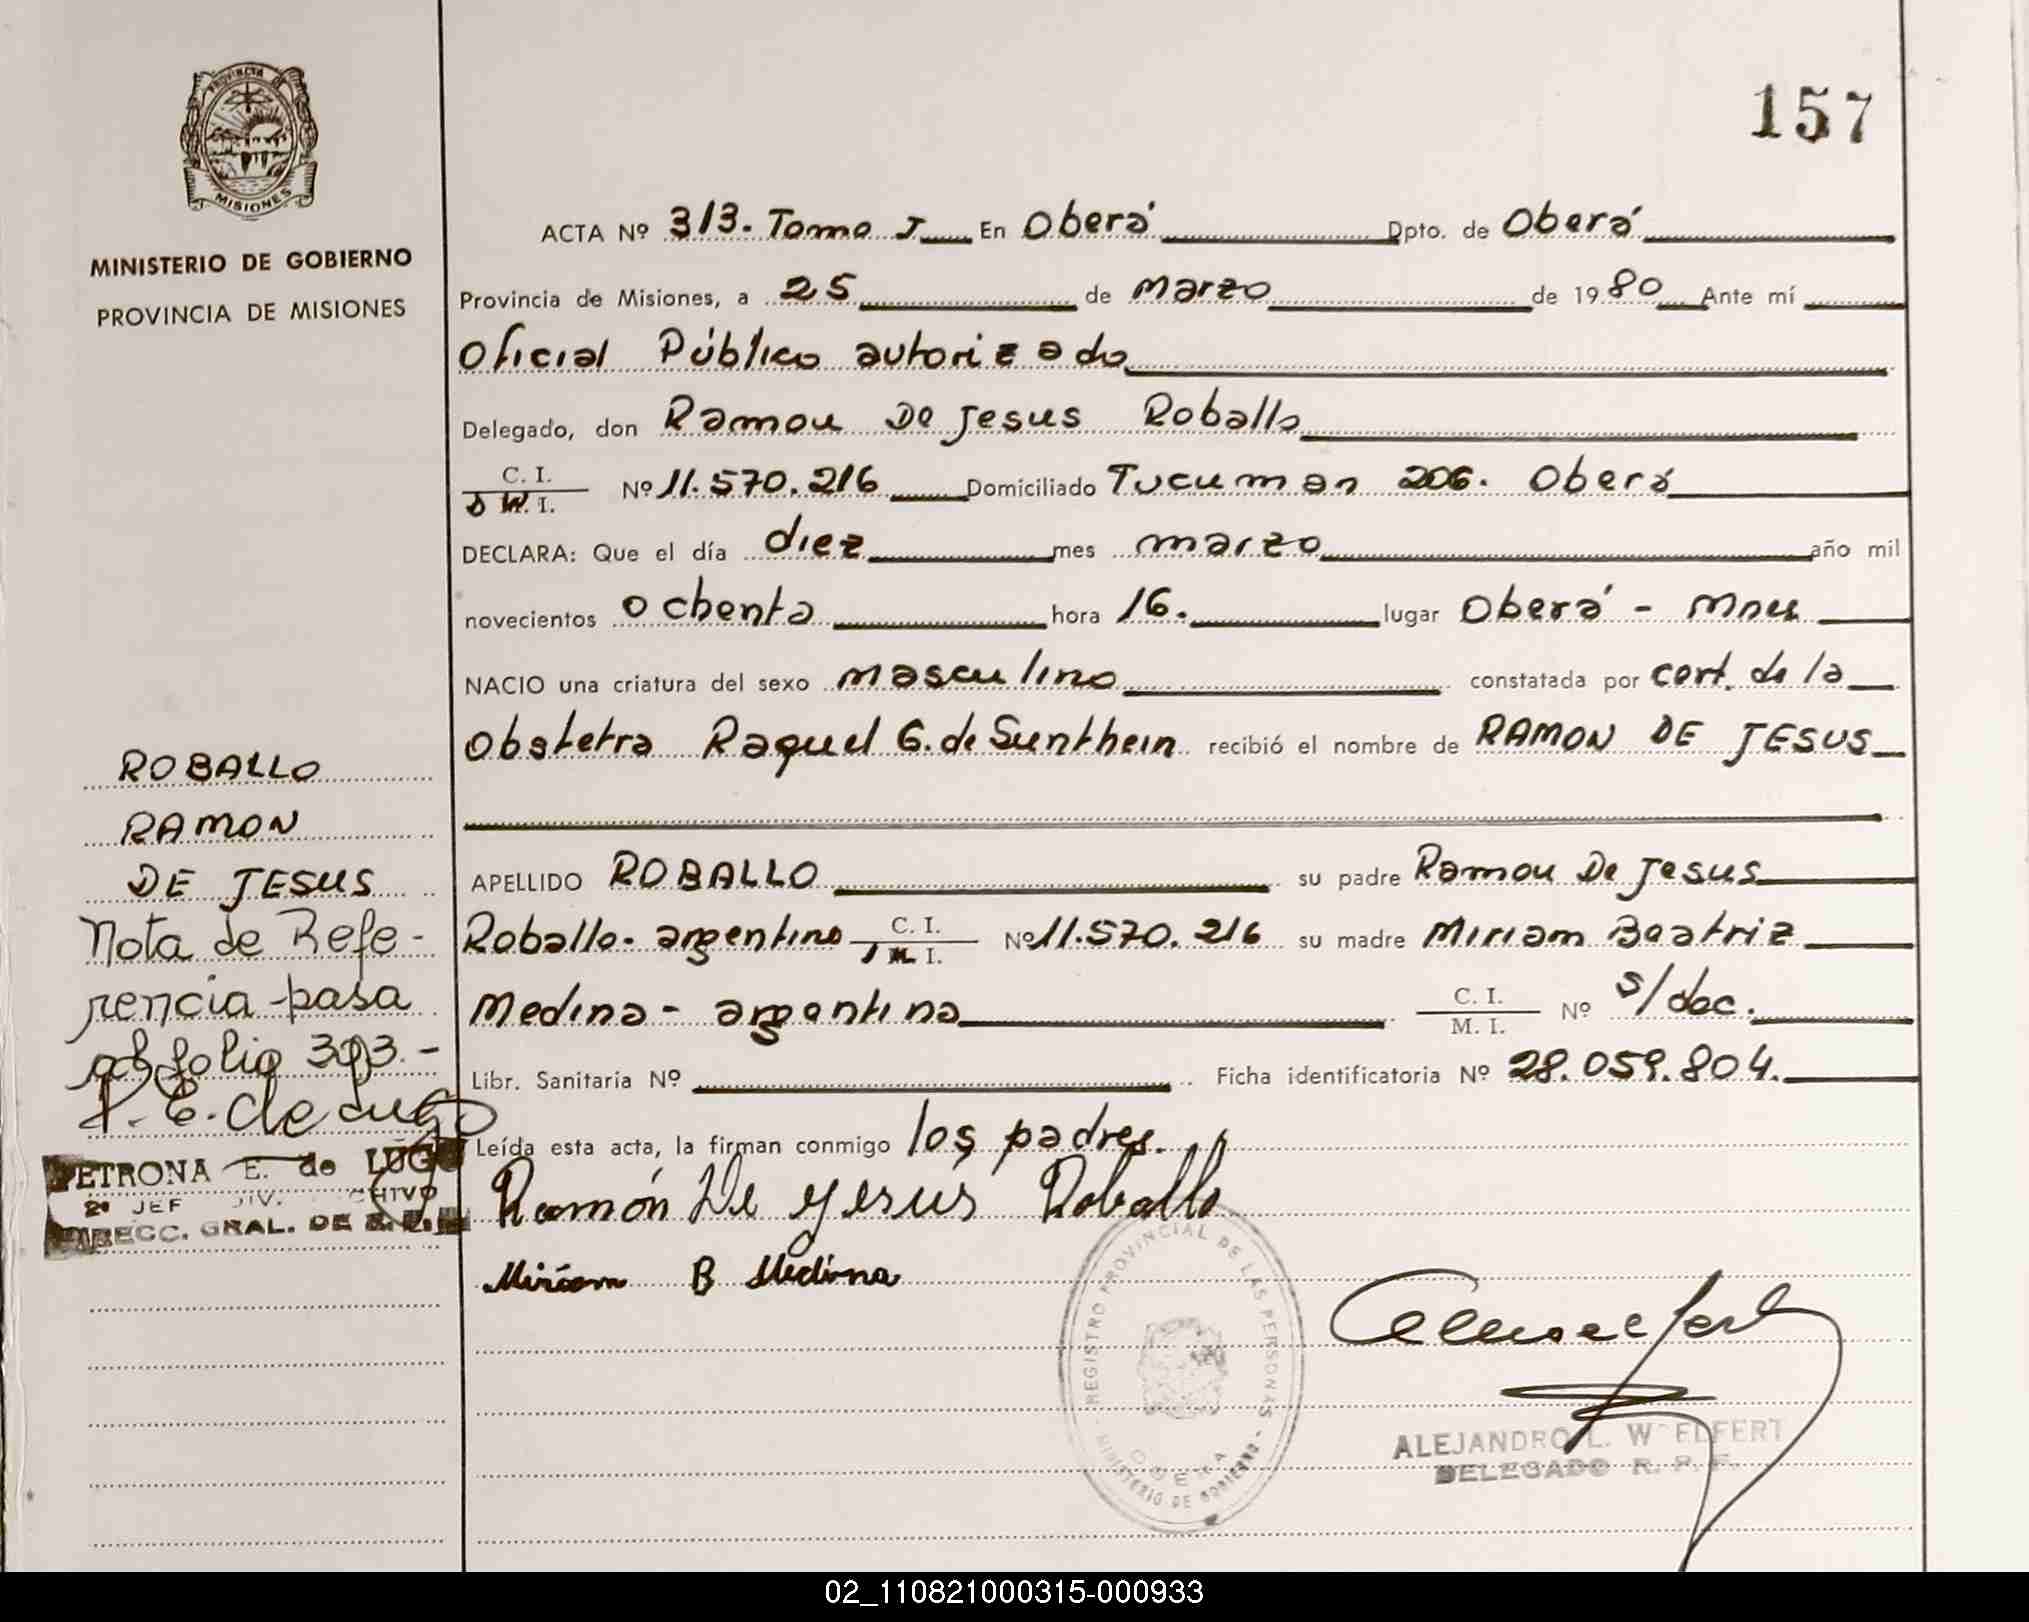 157
PROVINCIA DE
MISIONES
MINISTERIO DE GOBIERNO
PROVINCIA DE MISIONES
ACTA Nº 313. Tomo I En Oberá Dpto. de Oberá
Provincia de Misiones, a 25 de Marzo de 1980 Ante mí
Oficial Público autorizado
Delegado, don Ramon De Jesus Roballo
C. I.
D M. I.
Nº 11.570.216 Domiciliado Tucuman 206. Oberá
DECLARA: Que el día diez mes marzo año mil
novecientos ochenta hora 16. lugar Oberá - Mnes
NACIO una criatura del sexo masculino constatada por cert. de la
Obstetra Raquel G. de Sunthein recibió el nombre de RAMON DE JESUS
ROBALLO
RAMON
DE JESUS
APELLIDO ROBALLO su padre Ramon De Jesus
Roballo. argentino C. I. M. I. Nº 11.570.216 su madre Miriam Beatriz
Medina - argentina C. I. M. I. Nº s/doc.
Libr. Sanitaria Nº Ficha identificatoria Nº 28.059.804.
Leída esta acta, la firman conmigo los padres.
Ramón De Jesús Roballo
Miriam B Medina
Nota de Refe-
rencia pasa
al folio 393.-
P. E. de Lugo
PETRONA E. de LUGO
2º JEF DIV. CHIVO
DIRECC. GRAL. DE
REGISTRO PROVINCIAL DE LAS PERSONAS
MINISTERIO DE GOBIERNO
OBERA
ALEJANDRO L. W ELFERT
DELEGADO R. P. P.
02_110821000315-000933